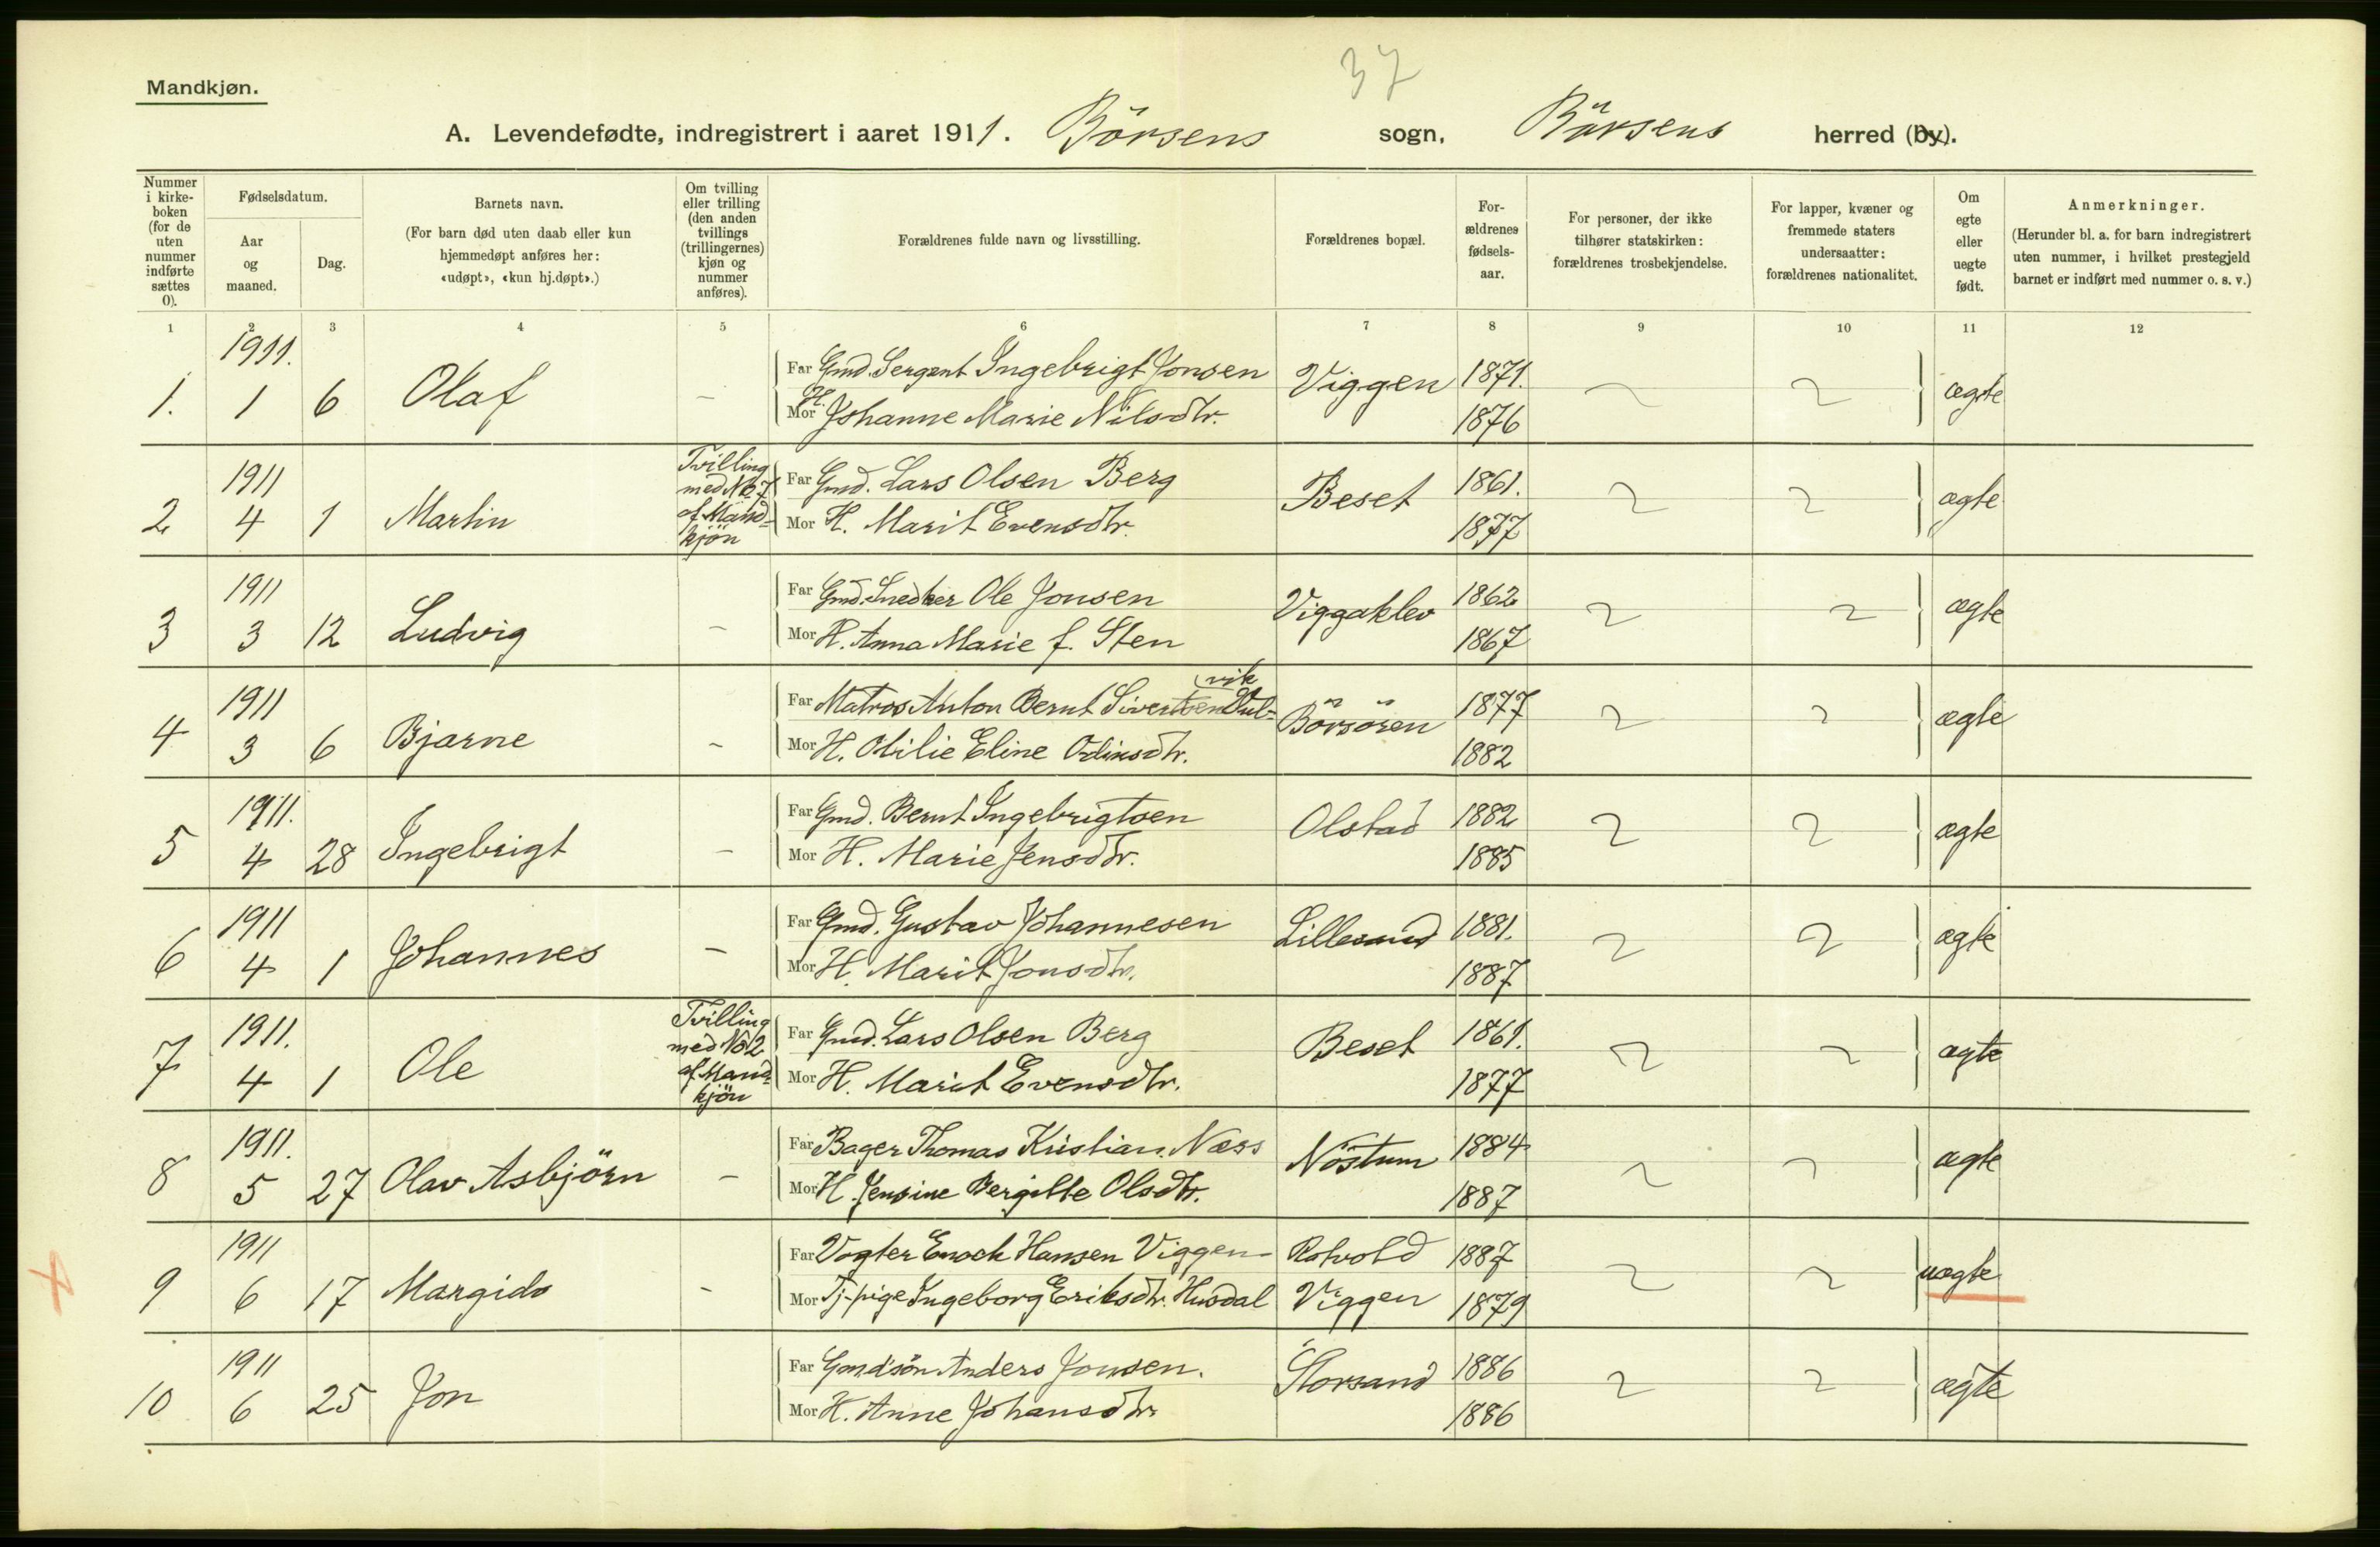 37
Mandkjøn.
A. Levendefødte, indregistrert i aaret 1911. Börsens sogn, Börsens herred (by).
Nummer i kirke-boken (for de uten nummer indførte sættes 0).
Fødselsdatum.
Aar og maaned.
Dag.
Barnets navn.
(For barn død uten daab eller kun hjemmedøpt anføres her: «udøpt», «kun hj.døpt».)
Om tvilling eller trilling (den anden tvillings (trillingernes) kjøn og nummer anføres).
Forældrenes fulde navn og livsstilling.
Forældrenes bopæl.
For-ældrenes fødsels-aar.
For personer, der ikke tilhører statskirken: forældrenes trosbekjendelse.
For lapper, kvæner og fremmede staters undersaatter: forældrenes nationalitet.
Om egte eller uegte født.
Anmerkninger.
(Herunder bl. a. for barn indregistrert uten nummer, i hvilket prestegjeld barnet er indført med nummer o. s. v.)
1 2 3 4 5 6 7 8 9 10 11 12
1911.
1. 1 6 Olaf - Far Gmd. Sergent Ingebrigt Jonsen Viggen 1871. ægte
Mor H. Johanne Marie Nilsdtr. 1876
1911
2 4 1 Martin Tvilling med No 7 af Mand-kjön Far Gmd. Lars Olsen Berg Beset 1861. ægte
Mor H. Marit Evensdtr. 1877
1911
3 3 12 Ludvig - Far Gmd. Snedker Ole Jonsen Viggaklev 1862 ægte
Mor H. Anna Marie f. Sten 1867
1911
4 3 6 Bjarne - Far Matros Anton Bernt Sivertsen Vul=vik Börsören 1877 ægte
Mor H. Otilie Eline Odinsdtr. 1882
1911.
5 4 28 Ingebrigt - Far Gmd. Bernt Ingebrigtsen Olstad 1882 ægte
Mor H. Marie Jensdtr. 1885
1911
6 4 1 Johannes - Far Gmd. Gustav Johannesen Lillesand 1881. ægte
Mor H. Marit Jonsdtr. 1887
1911.
7 4 1 Ole Tvilling med No 2 af Mand-kjön Far Gmd. Lars Olsen Berg Beset 1861. ægte
Mor H. Marit Evensdtr. 1877
1911.
8 5 27 Olav Asbjörn - Far Bager Thomas Kristian Næss Nöstum 1884 ægte
Mor H. Jensine Bergitte Olsdtr. 1887
1911
9 6 17 Margido - Far Vogter Enoch Hansen Viggen Rotvold 1887 uægte
Mor Tj.pige Ingeborg Eriksdtr. Husdal Viggen 1879
1911
10 6 25 Jon Far Gmdsön Anders Jonsen. Storsand 1886 ægte
Mor H. Anne Johansdtr. 1886